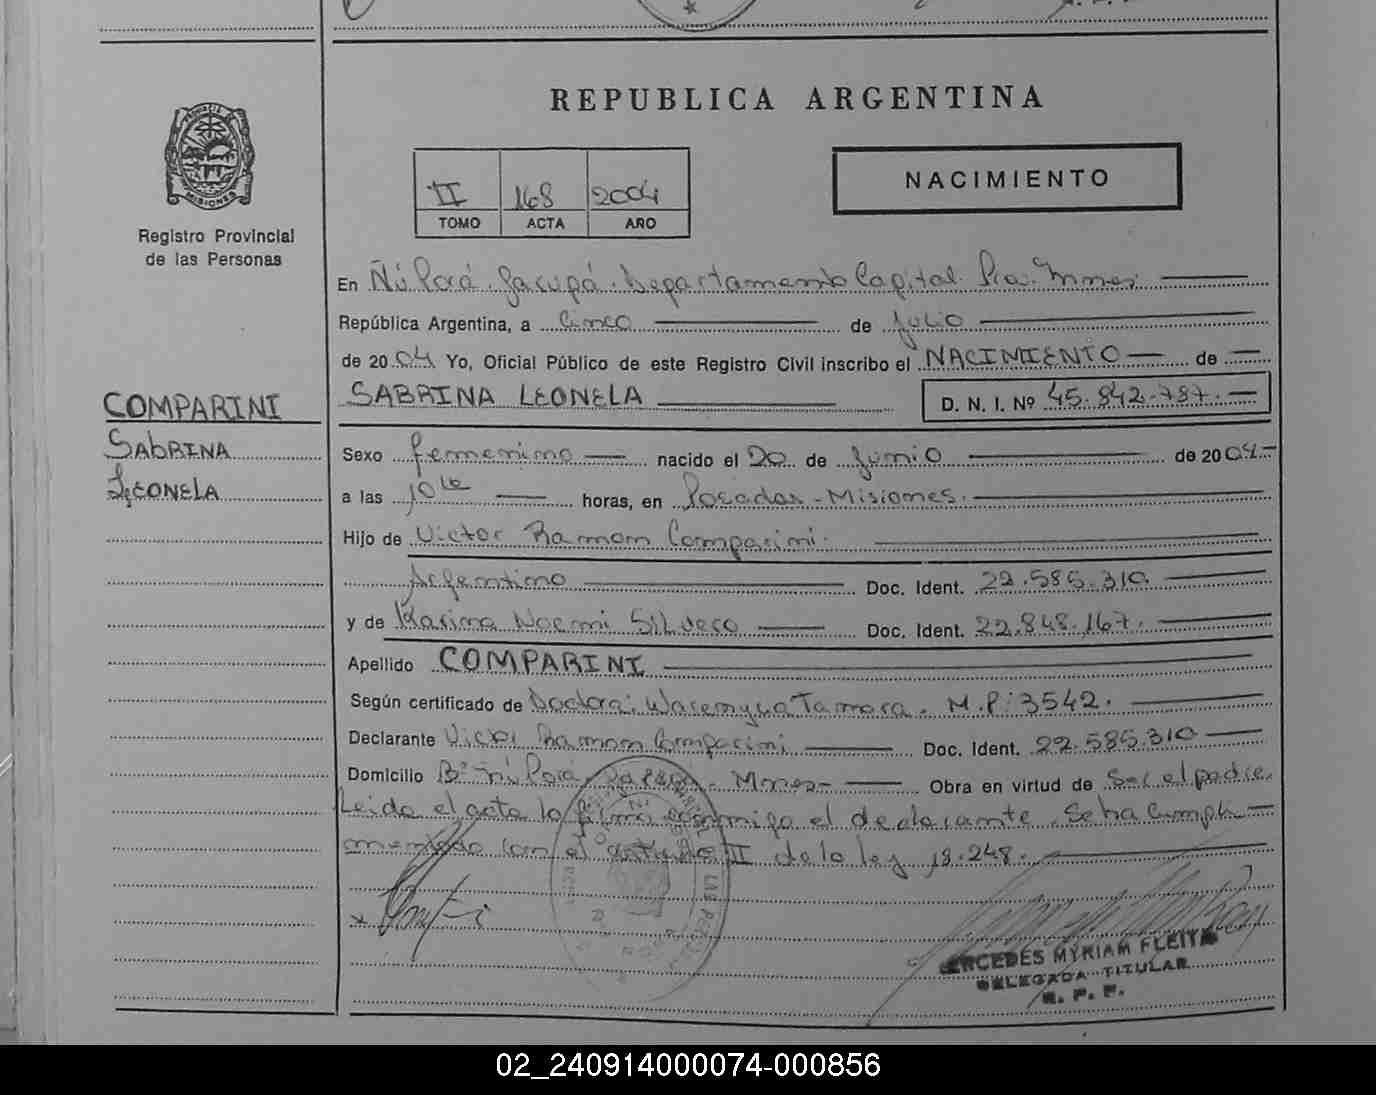 REPUBLICA ARGENTINA
PROVINCIA DE MISIONES
Registro Provincial
de las Personas
II 168 2004
TOMO ACTA AÑO
NACIMIENTO
En Ñú Porá. Garupá. Departamento Capital. Pia. Mnes.
República Argentina, a Cinco de Julio
de 2004 Yo, Oficial Público de este Registro Civil inscribo el NACIMIENTO de
SABRINA LEONELA D. N. I. Nº 45.842.787.
COMPARINI
SABRINA
LEONELA
Sexo femenino nacido el 20 de Junio de 2004
a las 10 horas, en Posadas - Misiones.
Hijo de Victor Ramon Comparini.
Argentino Doc. Ident. 22.585.310
y de Karina Noemi Silvero Doc. Ident. 22.848.167.
Apellido COMPARINI
Según certificado de Doctora: Tamara. M.P: 3542.
Declarante Victor Ramon Comparini Doc. Ident. 22.585.310
Domicilio Bº Ñú Porá, Garupá - Mnes - Obra en virtud de Ser el padre.
Leido el acta la firma conmigo el declarante. Se ha Cumpli
mentado con el articulo II de la ley 18.248.
MERCEDES MYRIAM FLEITA
DELEGADA TITULAR
R. P. P.
02_240914000074-000856